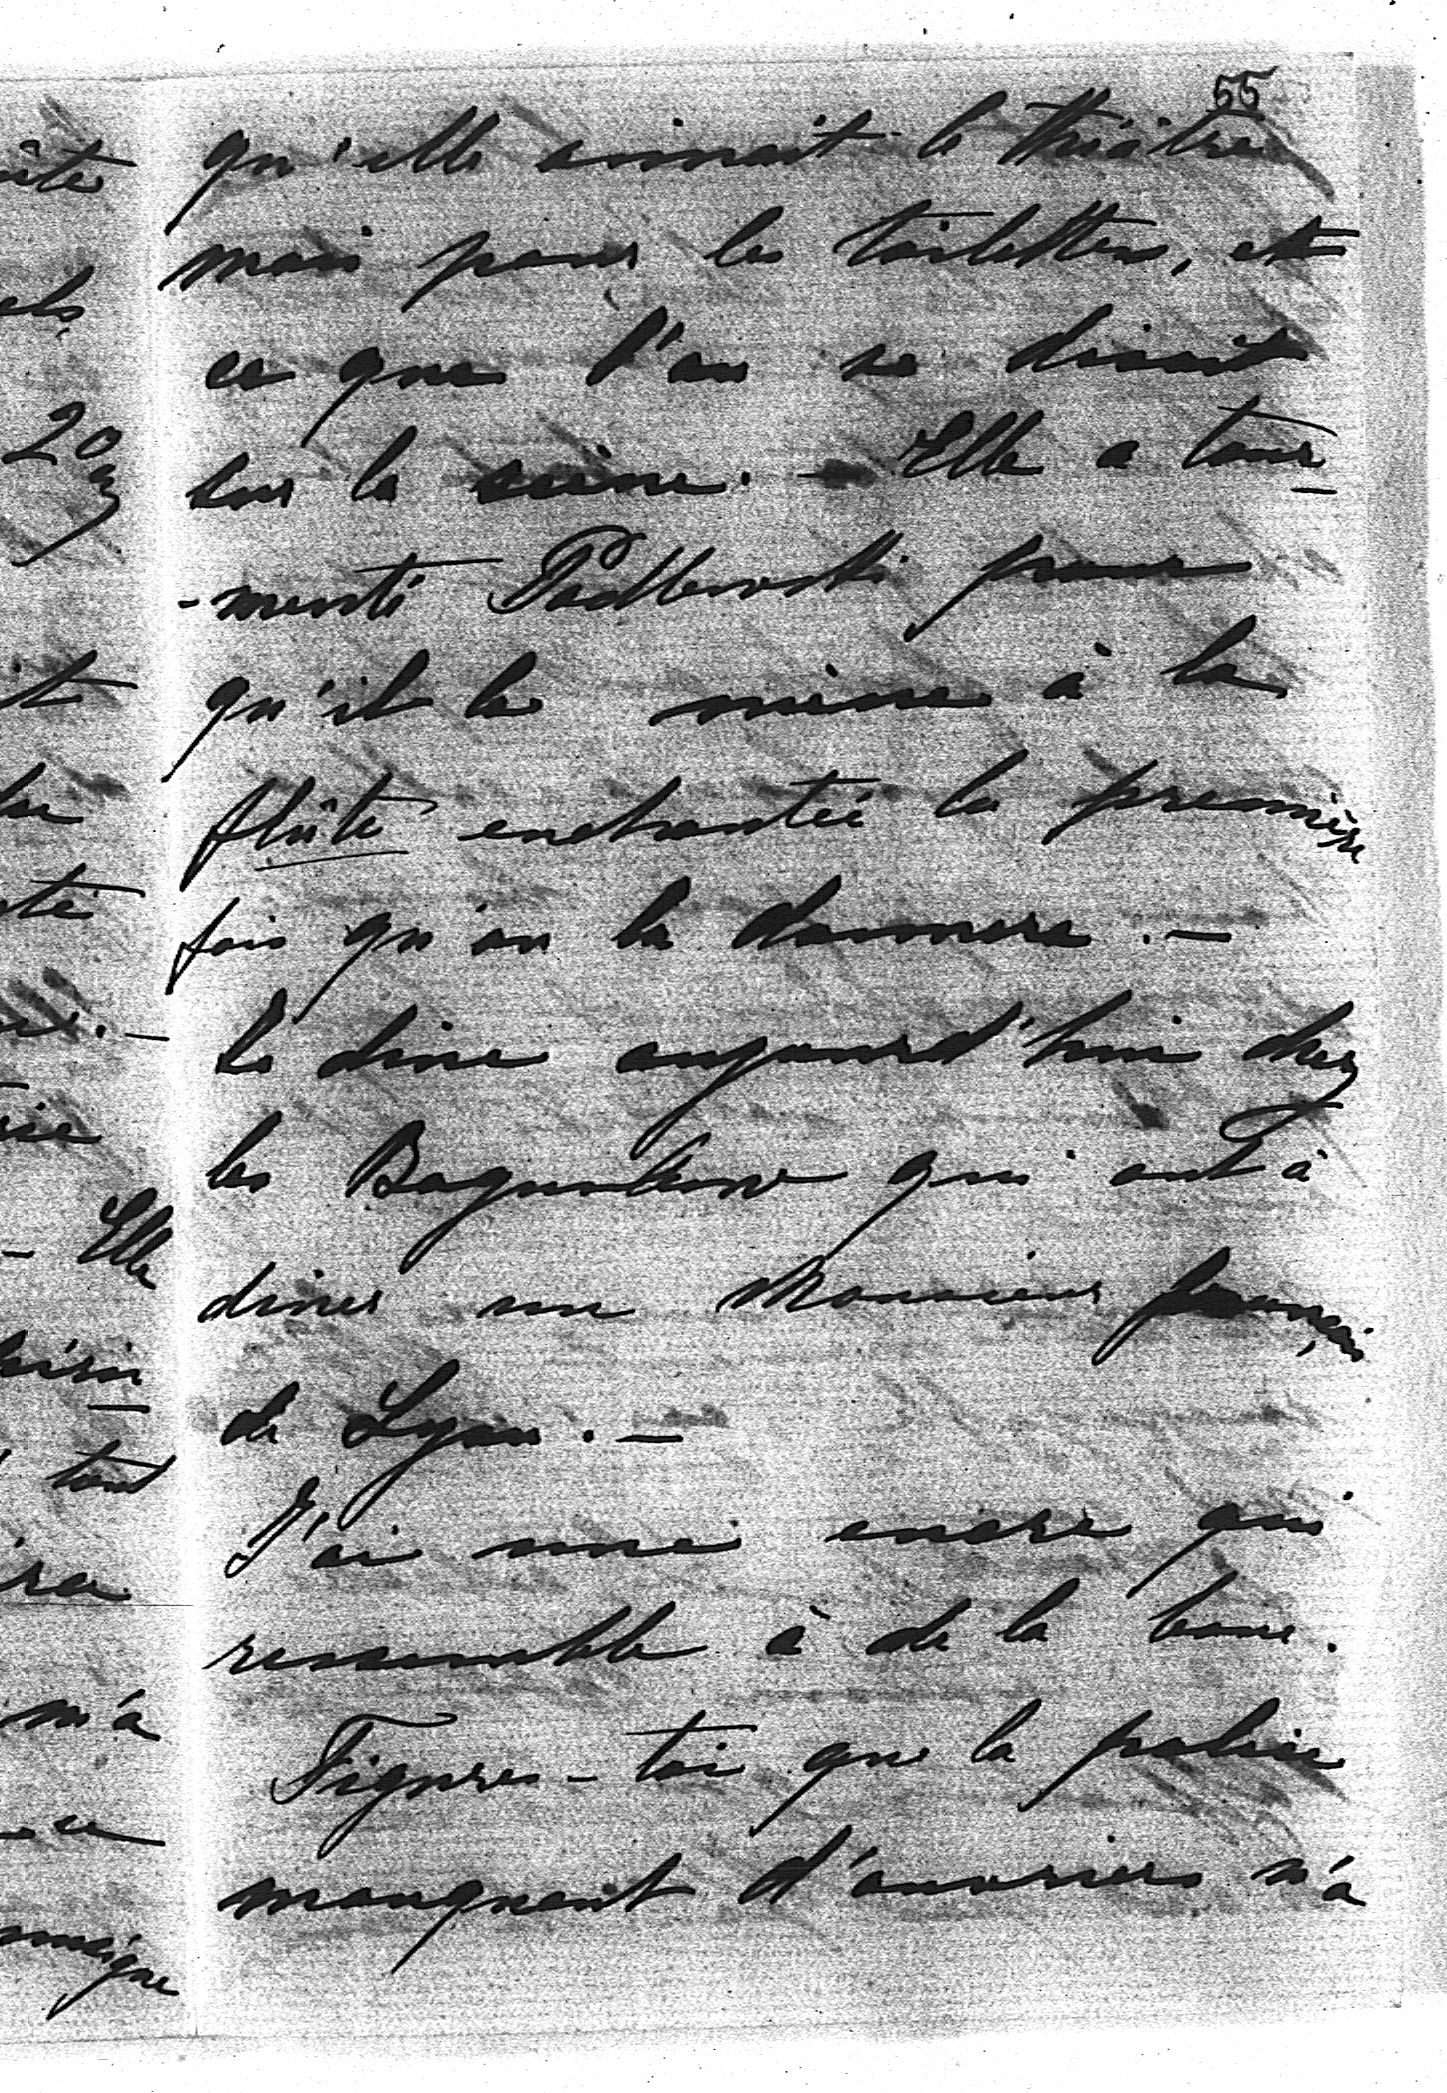 55
qu'elle aimait le théâtre
mais pour les toilettes, et
ce que l'on se disait
sur la scène. – Elle a tour-
-menté Padlewski pour
qu'il la mène à la
flûte enchantée la première
fois qu'on la donnera. –
Je dine aujourd'hui chez
les qui ont à
diner un Monsieur français
de Lyon. –
J'ai une encre qui
ressemble à de la boue.
Figures-toi que la police
manquant d'ouvriers n'a